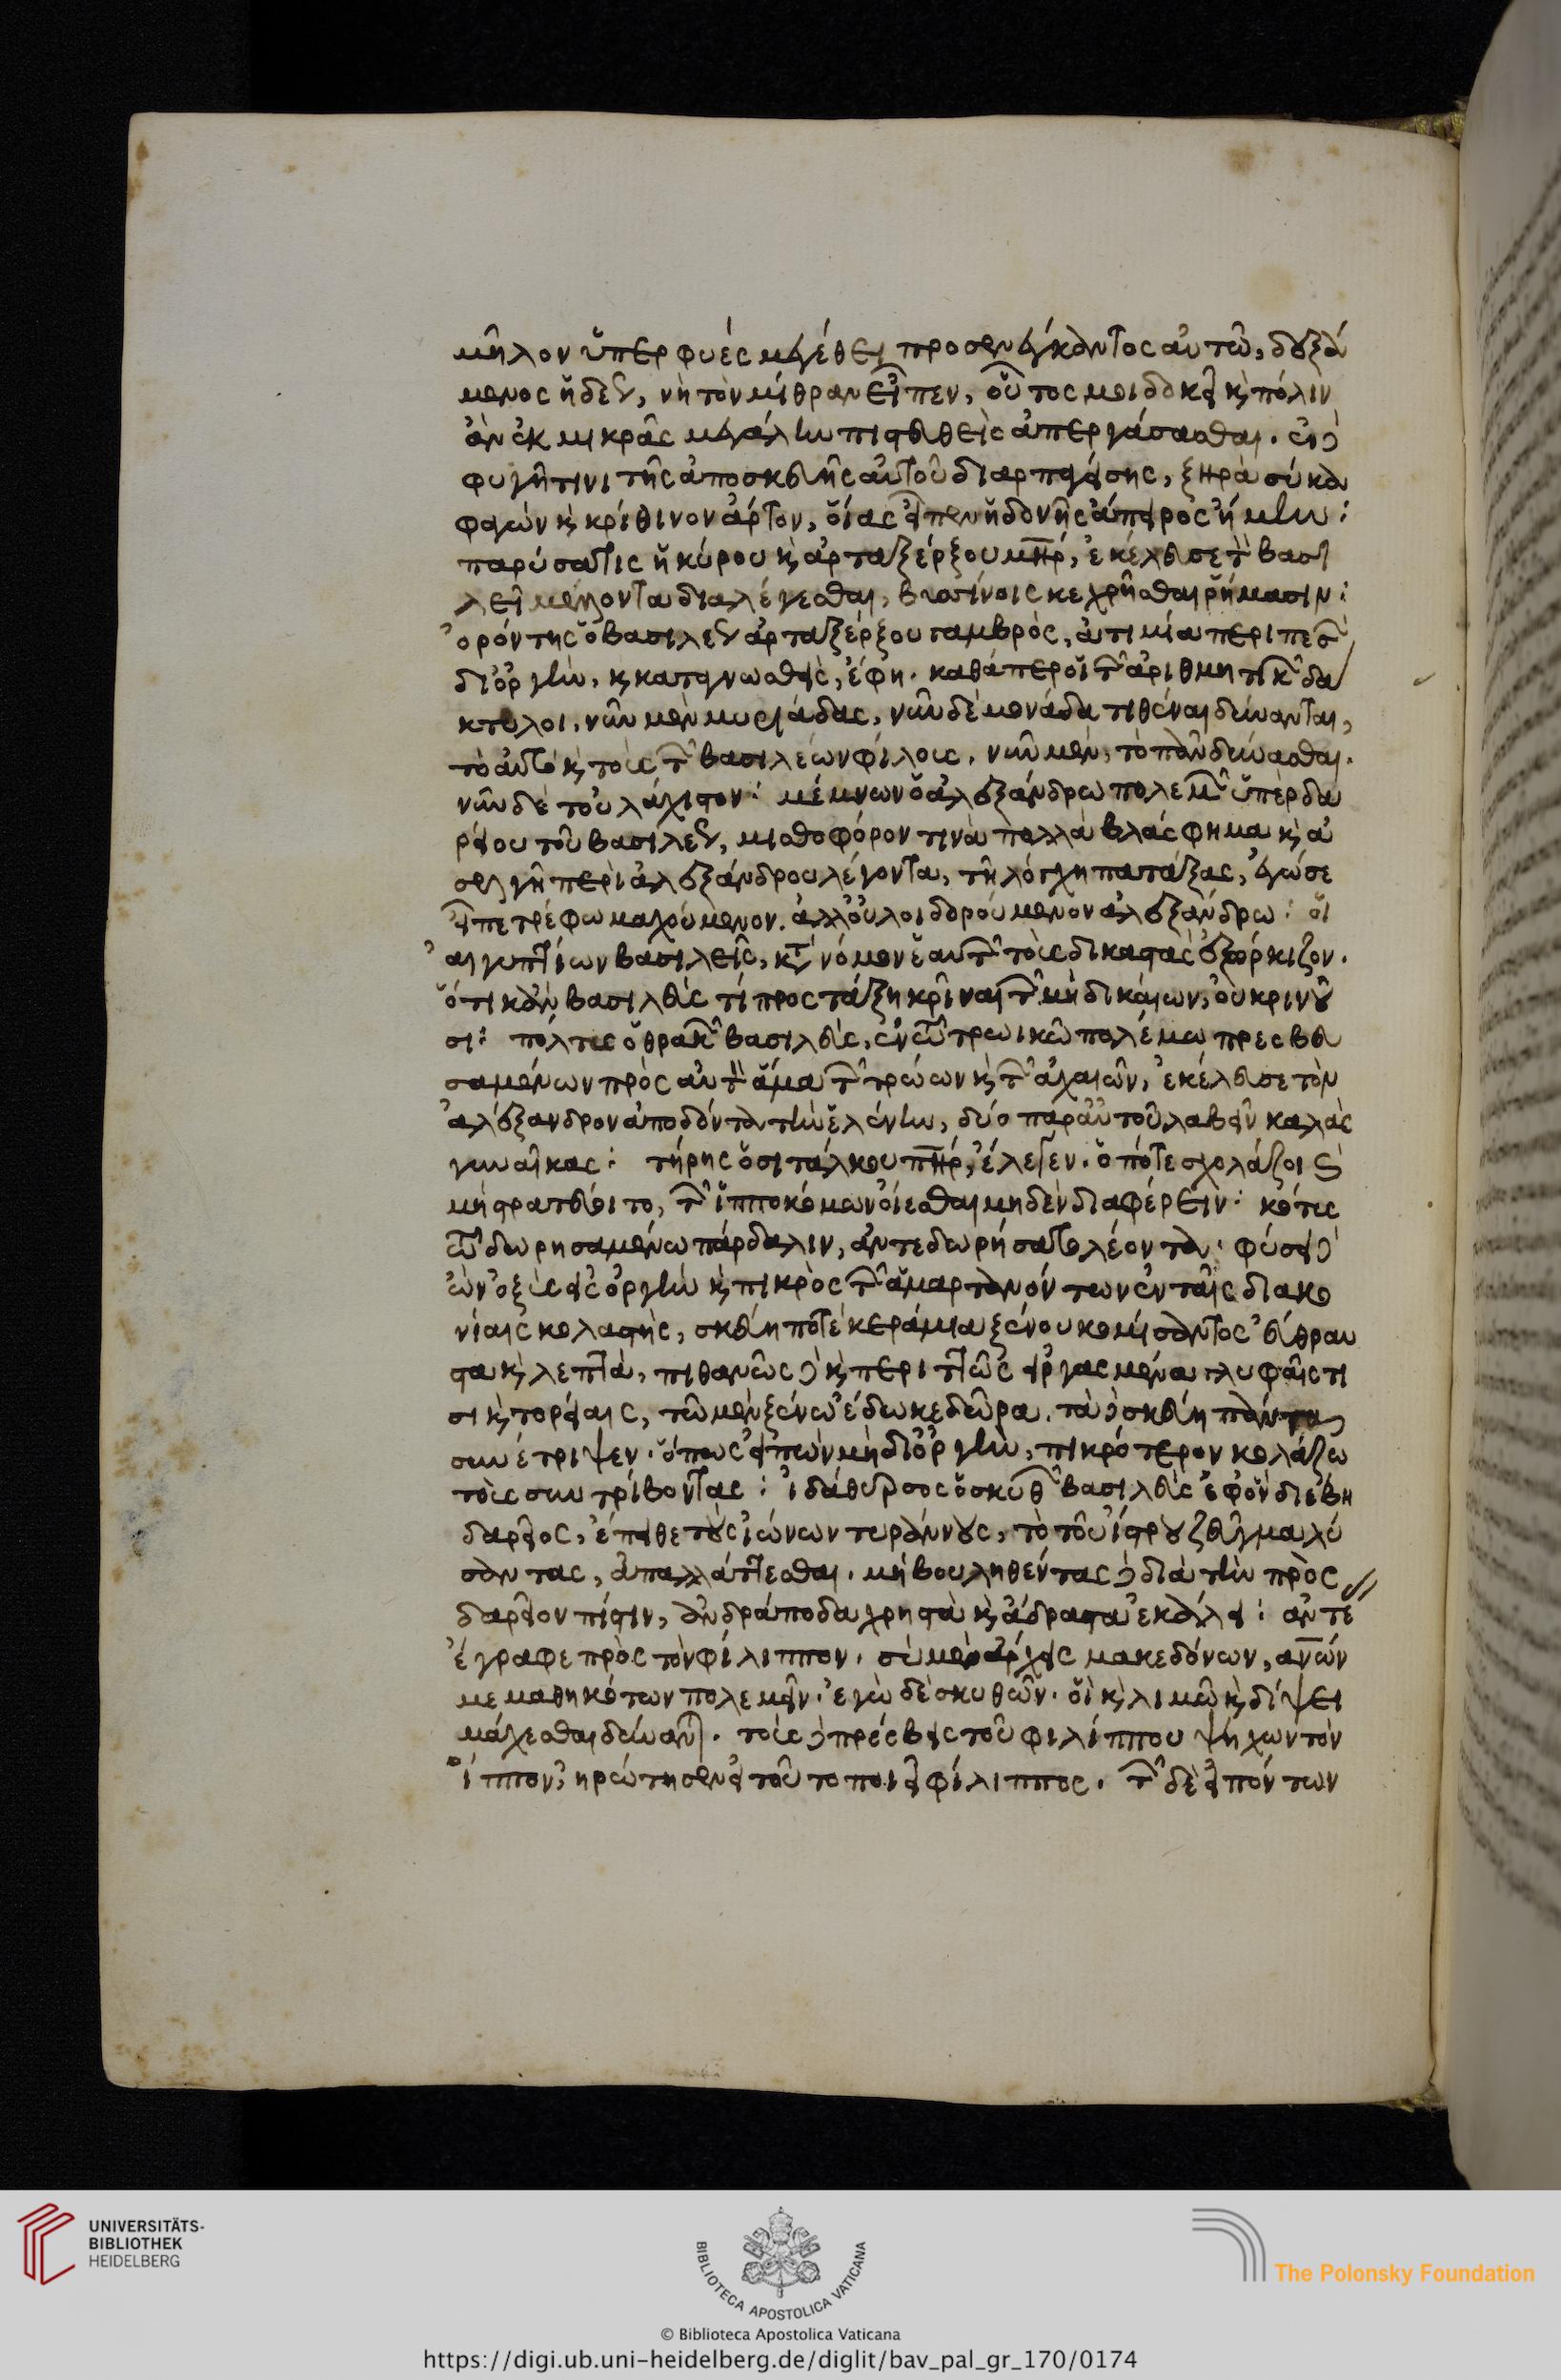 μῆλον ὑπερφυὲς μεγέθει προσενεγκόντος αὐτῶ, δεξά
μενος ἡδέως, νὴ τὸν μίθραν εἶπεν, οὗτος μοι δοκεῖ κ πόλιν
ἂν ἐκ μικρᾶς μεγάλην πιστευθεὶς ἀπεργάσασθαι. ἐν δὲ
φυγῆ τινι τῆς ἀποσκευῆς αὐτοῦ διαρπαγείσης, ξηρὰ σύκα
φαγὼν κ κρίθινον ἄρτον, οἵας εἶπεν ἡδονῆς ἄπειρος ἤμην:
παρύσατις ἡ κύρου κ ἀρταξέρξου μηρ, ἐκέλευσε τὸν βασι
λεῖ μέλλοντα διαλέγεσθαι, βυσσίνοις κεχρῆσθαι ῥήμασιν:
ὀρόντης ὁ βασιλέως ἀρταξέρξου γαμβρὸς, ἀτιμία περιπεσὼν
δι ὀργὴν, κ καταγνωσθεὶς, ἔφη. καθάπερ οἱ τῶν ἀριθμητικῶν δα
κτυλοι, νῦν μὲν μυριάδας, νῦν δὲ μονάδα τιθέναι δύνανται,
τὸ αὐτὸ κ τοὺς τῶν βασιλέων φίλους, νῦν μὲν, τὸ πᾶν δύνασθαι.
νῦν δὲ τοὐλάχιστον: μέμνων ὁ ἀλεξάνδρω πολεμῶν ὑπὲρ δα
ρείου τοῦ βασιλέως, μισθοφόρον τινὰ πολλὰ βλάσφημα κ ἀ
σελγῆ περὶ ἀλεξάνδρου λέγοντα, τῆ λόγχη πατάξας, ἐγώ σε
εἶπε τρέφω μαχούμενον. ἀλλ' οὐ λοιδορούμενον ἀλεξάνδρω: οἱ
αἰγυπτίων βασιλεῖς, κτ νόμον ἑαυτῶν τοὺς δικαστὰς ἐξώρκιζον.
ὅτι κἂν βασιλεύς τι προστάξη κρῖναι τῶν μὴ δικαίων, οὐ κρινοῦ
σι: πόλτυς ὁ θρακῶν βασιλεύς, ἐν τῶ τρωικῶ πολέμω πρεσβευ
σαμένων πρὸς αὐτὸν ἅμα τῶν τρώων κ τῶν ἀχαιῶν, ἐκέλευσε τὸν
ἀλέξανδρον ἀποδόντα τὴν ἑλένην, δύο παρ αὐτοῦ λαβεῖν καλὰς
γυναῖκας: τήρης ὁ σιτάλκου πηρ, ἔλεγεν. ὁπότε σχολάζοι κ
μὴ στρατεύοιτο, τῶν ἱπποκόμων οἴεσθαι μηδὲν διαφέρειν: κότυς
τῶ δωρησαμένω πάρδαλιν, ἀντεδωρήσατο λέοντα. φύσει δὲ
ὢν ὀξὺς εἰς ὀργὴν κ πικρὸς τῶν ἁμαρτανόντων ἐν ταῖς διακο
νίαις κολαστὴς, σκεύη ποτὲ κεράμια ξένου κομίσαντος εὔθραυ
στα κ λεπτὰ, πιθανῶς δὲ κ περιττῶς εἰργασμένα γλυφαῖς τι
σι κ τορείαις, τῶ μὲν ξένω ἔδωκε δῶρα. τὰ δὲ σκεύη πάντα
συνέτριψεν. ὅπως εἰπὼν μὴ δι ὀργὴν, πικρότερον κολάζω
τοὺς συντρίβοντας: ἰδάθυρσος ὁ σκυθῶν βασιλεὺς ἐφ ὃν διέβη
δαρεῖος, ἔπειθε τοὺς ἰώνων τυράννους, τὸ τοῦ ἴστρου ζεῦγμα λύ
σαντας, ἀπαλλάττεσθαι. μὴ βουληθέντας δὲ διὰ τὴν πρὸς
δαρεῖον πίστιν, ἀνδράποδα χρηστὰ κ ἄδραστα ἐκάλει: ἀντέ
ἔγραφε πρὸς τὸν φίλιππον. σὺ μὲν ἄρχεις μακεδόνων, ανων
μεμαθηκότων πολεμεῖν. ἐγὼ δὲ σκυθῶν. οἳ κ λιμῶ κ δίψει
μάχεσθαι δύνανται. τοὺς δὲ πρέσβεις τοῦ φιλίππου ψήχων τὸν
ἵππον, ἠρώτησεν εἰ τοῦτο ποιεῖ φίλιππος. τῶν δὲ εἰπόντων
UNIVERSITÄTS-
BIBLIOTHEK
HEIDELBERG
BIBLIOTECA APOSTOLICA VATICANA
The Polonsky Foundation
© Biblioteca Apostolica Vaticana
https://digi.ub.uni-heidelberg.de/diglit/bav_pal_gr_170/0174